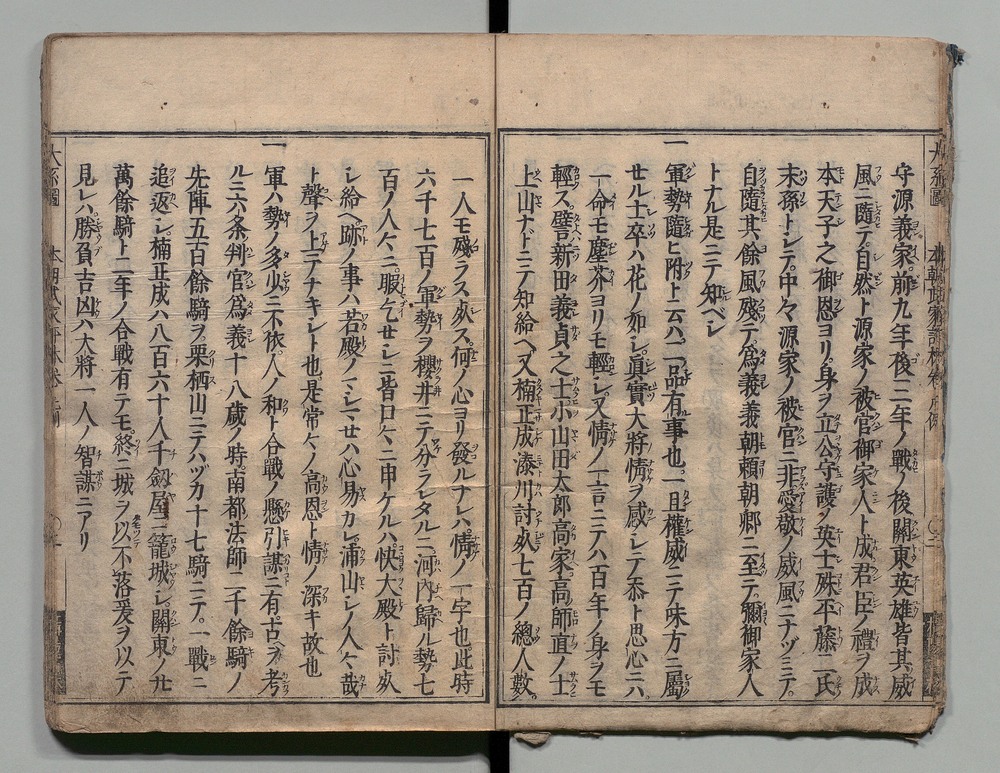 守源義家前九年後三年ノ戰ノ後關東英雄皆其威
風ニ隨テ自然ト源家ノ被官御家人ト成君臣ノ禮ヲ成
本天子之御恩ヨリ身ヲ立公守護ノ英士殊平藤二氏
末孫トシテ中々源家ノ被官ニ非愛敬ノ威風ニナヅミテ
自隨其餘風殘テ爲義義朝賴朝卿ニ至テ彌御家人
トナル是ニテ知ベシ
一 軍勢隨ヒ附ト云ハ二品有事也一旦權威ニテ味方ニ屬
セル士卒ハ花ノ如シ眞實大將情ヲ感シテ忝ト思心ニハ
一命モ塵芥ヨリモ輕シ又情ノ一言ニテハ百年ノ身ヲモ
輕ス譬新田義貞之士小山田太郎高家高師直ノ士
上山ナドニテ知給ヘ又楠正成湊川討死七百ノ總人數
一人モ殘ラス死ス何ノ心ヨリ發ルナレハ情ノ一字也此時
六千七百ノ軍勢ヲ櫻井ニテ分ラレタルニ河內歸ル勢七
百ノ人々ニ暇乞セシニ皆口々ニ申ケルハ快大殿ト討死
シ給ヘ跡ノ事ハ若殿ノマシマセハ心易カレ浦山シノ人々哉
ト聲ヲ上テナキシト也是常々ノ高恩ト情ノ深キ故也
一 軍ハ勢ノ多少ニ不依人ノ和ト合戰ノ懸引謀ニ有古ヲ考
ルニ六条判官爲義十八歲ノ時南都法師二千餘騎ノ
先陣五百餘騎ヲ栗栖山ニテハヅカ十七騎ニテ一戰ニ
追返シ楠正成ハ八百六十人千劔屋ニ籠城シ關東ノ廿
萬餘騎ト二年ノ合戰有テモ終ニ城ヲ以不落爰ヲ以テ
見レハ勝負吉凶ハ大將一人ノ智謀ニアリ